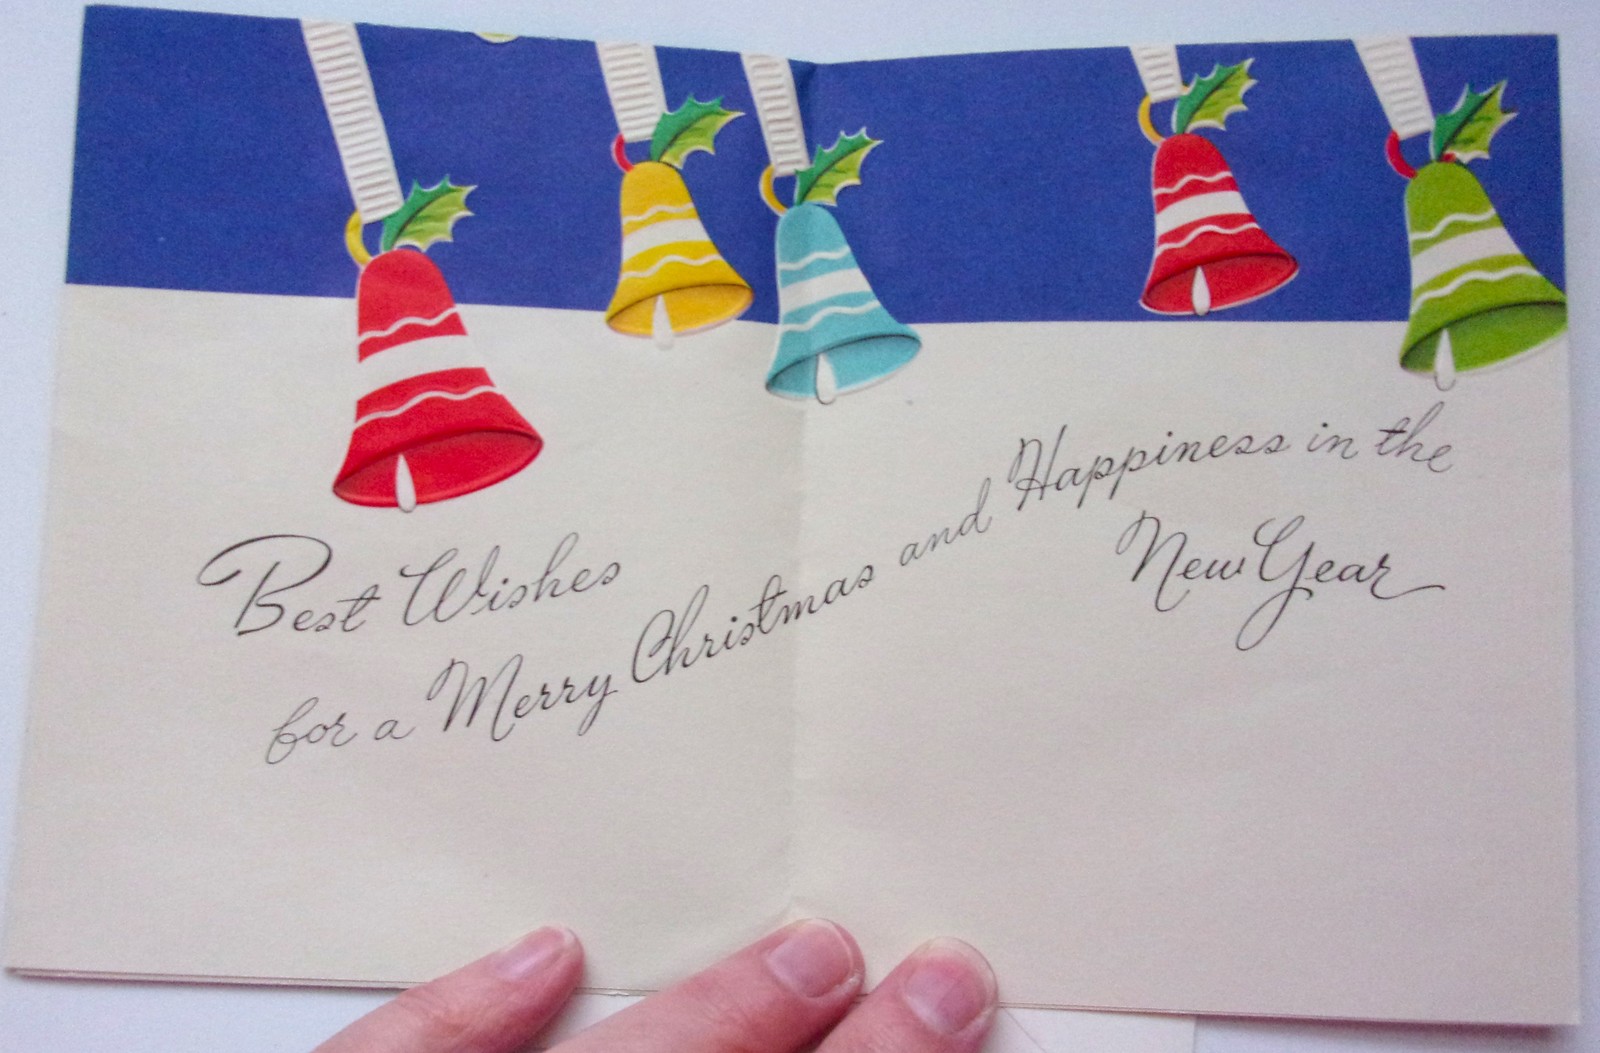 Best Wishes
for a Merry Christmas and Happiness in the
New Year